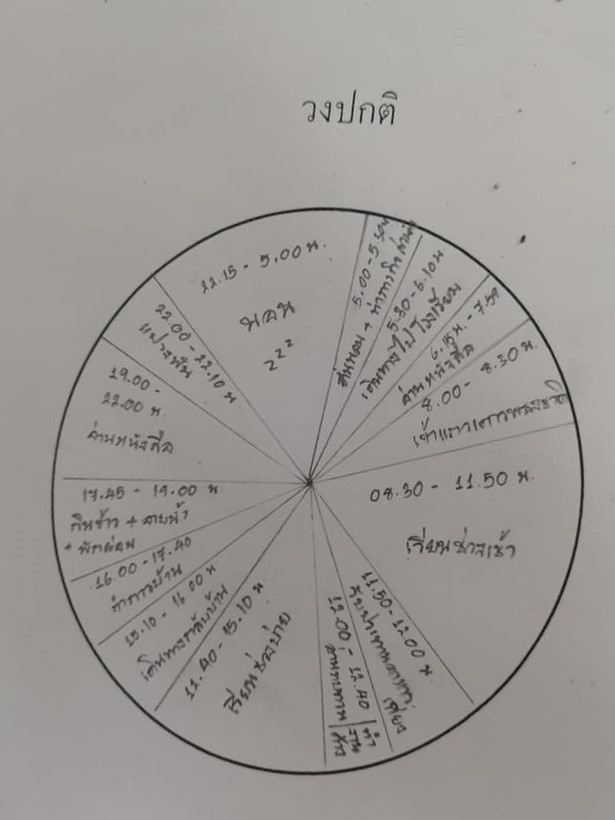 วงปกติ
22.15 - 5.00 น.
นอน
z z z
5.00 - 5.30 น
ตื่นนอน + ทำภารกิจ
5.30 - 6.10 น
เดินทางไปโรงเรียน
6.15 น. - 7.59
อ่านหนังสือ
8.00 - 8.30 น.
เข้าแถวเคารพธงชาติ
08.30 - 11.50 น.
เรียนช่วงเช้า
11.50 - 12.00 น
เที่ยง
12.00 - 12.40
ข้าว
12.40 - 15.10 น
เรียนช่วงบ่าย
15.10 - 16.00 น
เดินทางกลับบ้าน
16.00 - 17.40
ทำการบ้าน
17.45 - 19.00 น
กินข้าว + อาบน้ำ
+ พักผ่อน
19.00 -
22.00 น.
อ่านหนังสือ
22.00 - 22.10 น.
แปรงฟัน